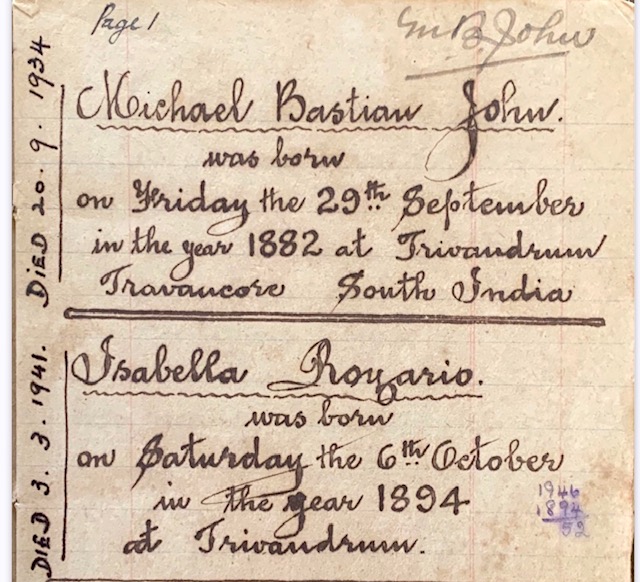 Page 1
M.B. John
Michael Bastian John.
was born
on Friday the 29th September
in the year 1882 at Trivandrum
Travancore South India
DIED 20.9.1934
Isabella Rozario.
was born
on Saturday the 6th October
in the year 1894
at Trivandrum.
DIED 3.3.1941.
1946
1894
52